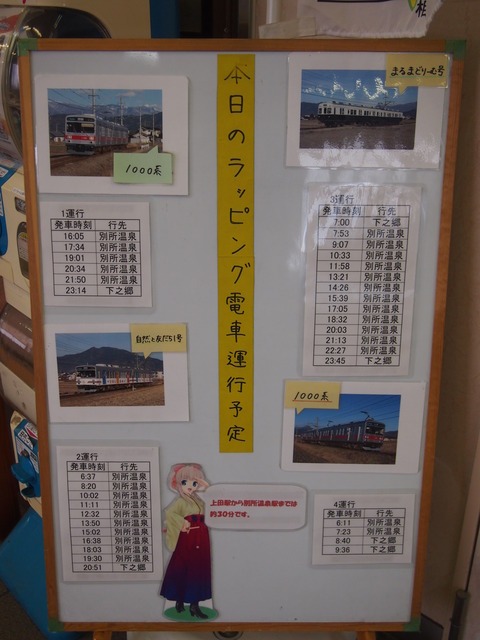 本日のラッピング電車運行予定
1000系
1運行
発車時刻 行先
16:05 別所温泉
17:34 別所温泉
19:01 別所温泉
20:34 別所温泉
21:50 別所温泉
23:14 下之郷
自然と友だち1号
2運行
発車時刻 行先
6:37 別所温泉
8:20 別所温泉
10:02 別所温泉
11:11 別所温泉
12:32 別所温泉
13:50 別所温泉
15:02 別所温泉
16:38 別所温泉
18:03 別所温泉
19:30 別所温泉
20:51 下之郷
まるまどりーむ号
3運行
発車時刻 行先
7:00 下之郷
7:53 別所温泉
9:07 別所温泉
10:33 別所温泉
11:58 別所温泉
13:21 別所温泉
14:26 別所温泉
15:39 別所温泉
17:05 別所温泉
18:32 別所温泉
20:03 別所温泉
21:13 別所温泉
22:27 別所温泉
23:45 下之郷
1000系
4運行
発車時刻 行先
6:11 別所温泉
7:23 別所温泉
8:40 下之郷
9:36 下之郷
上田駅から別所温泉駅までは
約30分です。